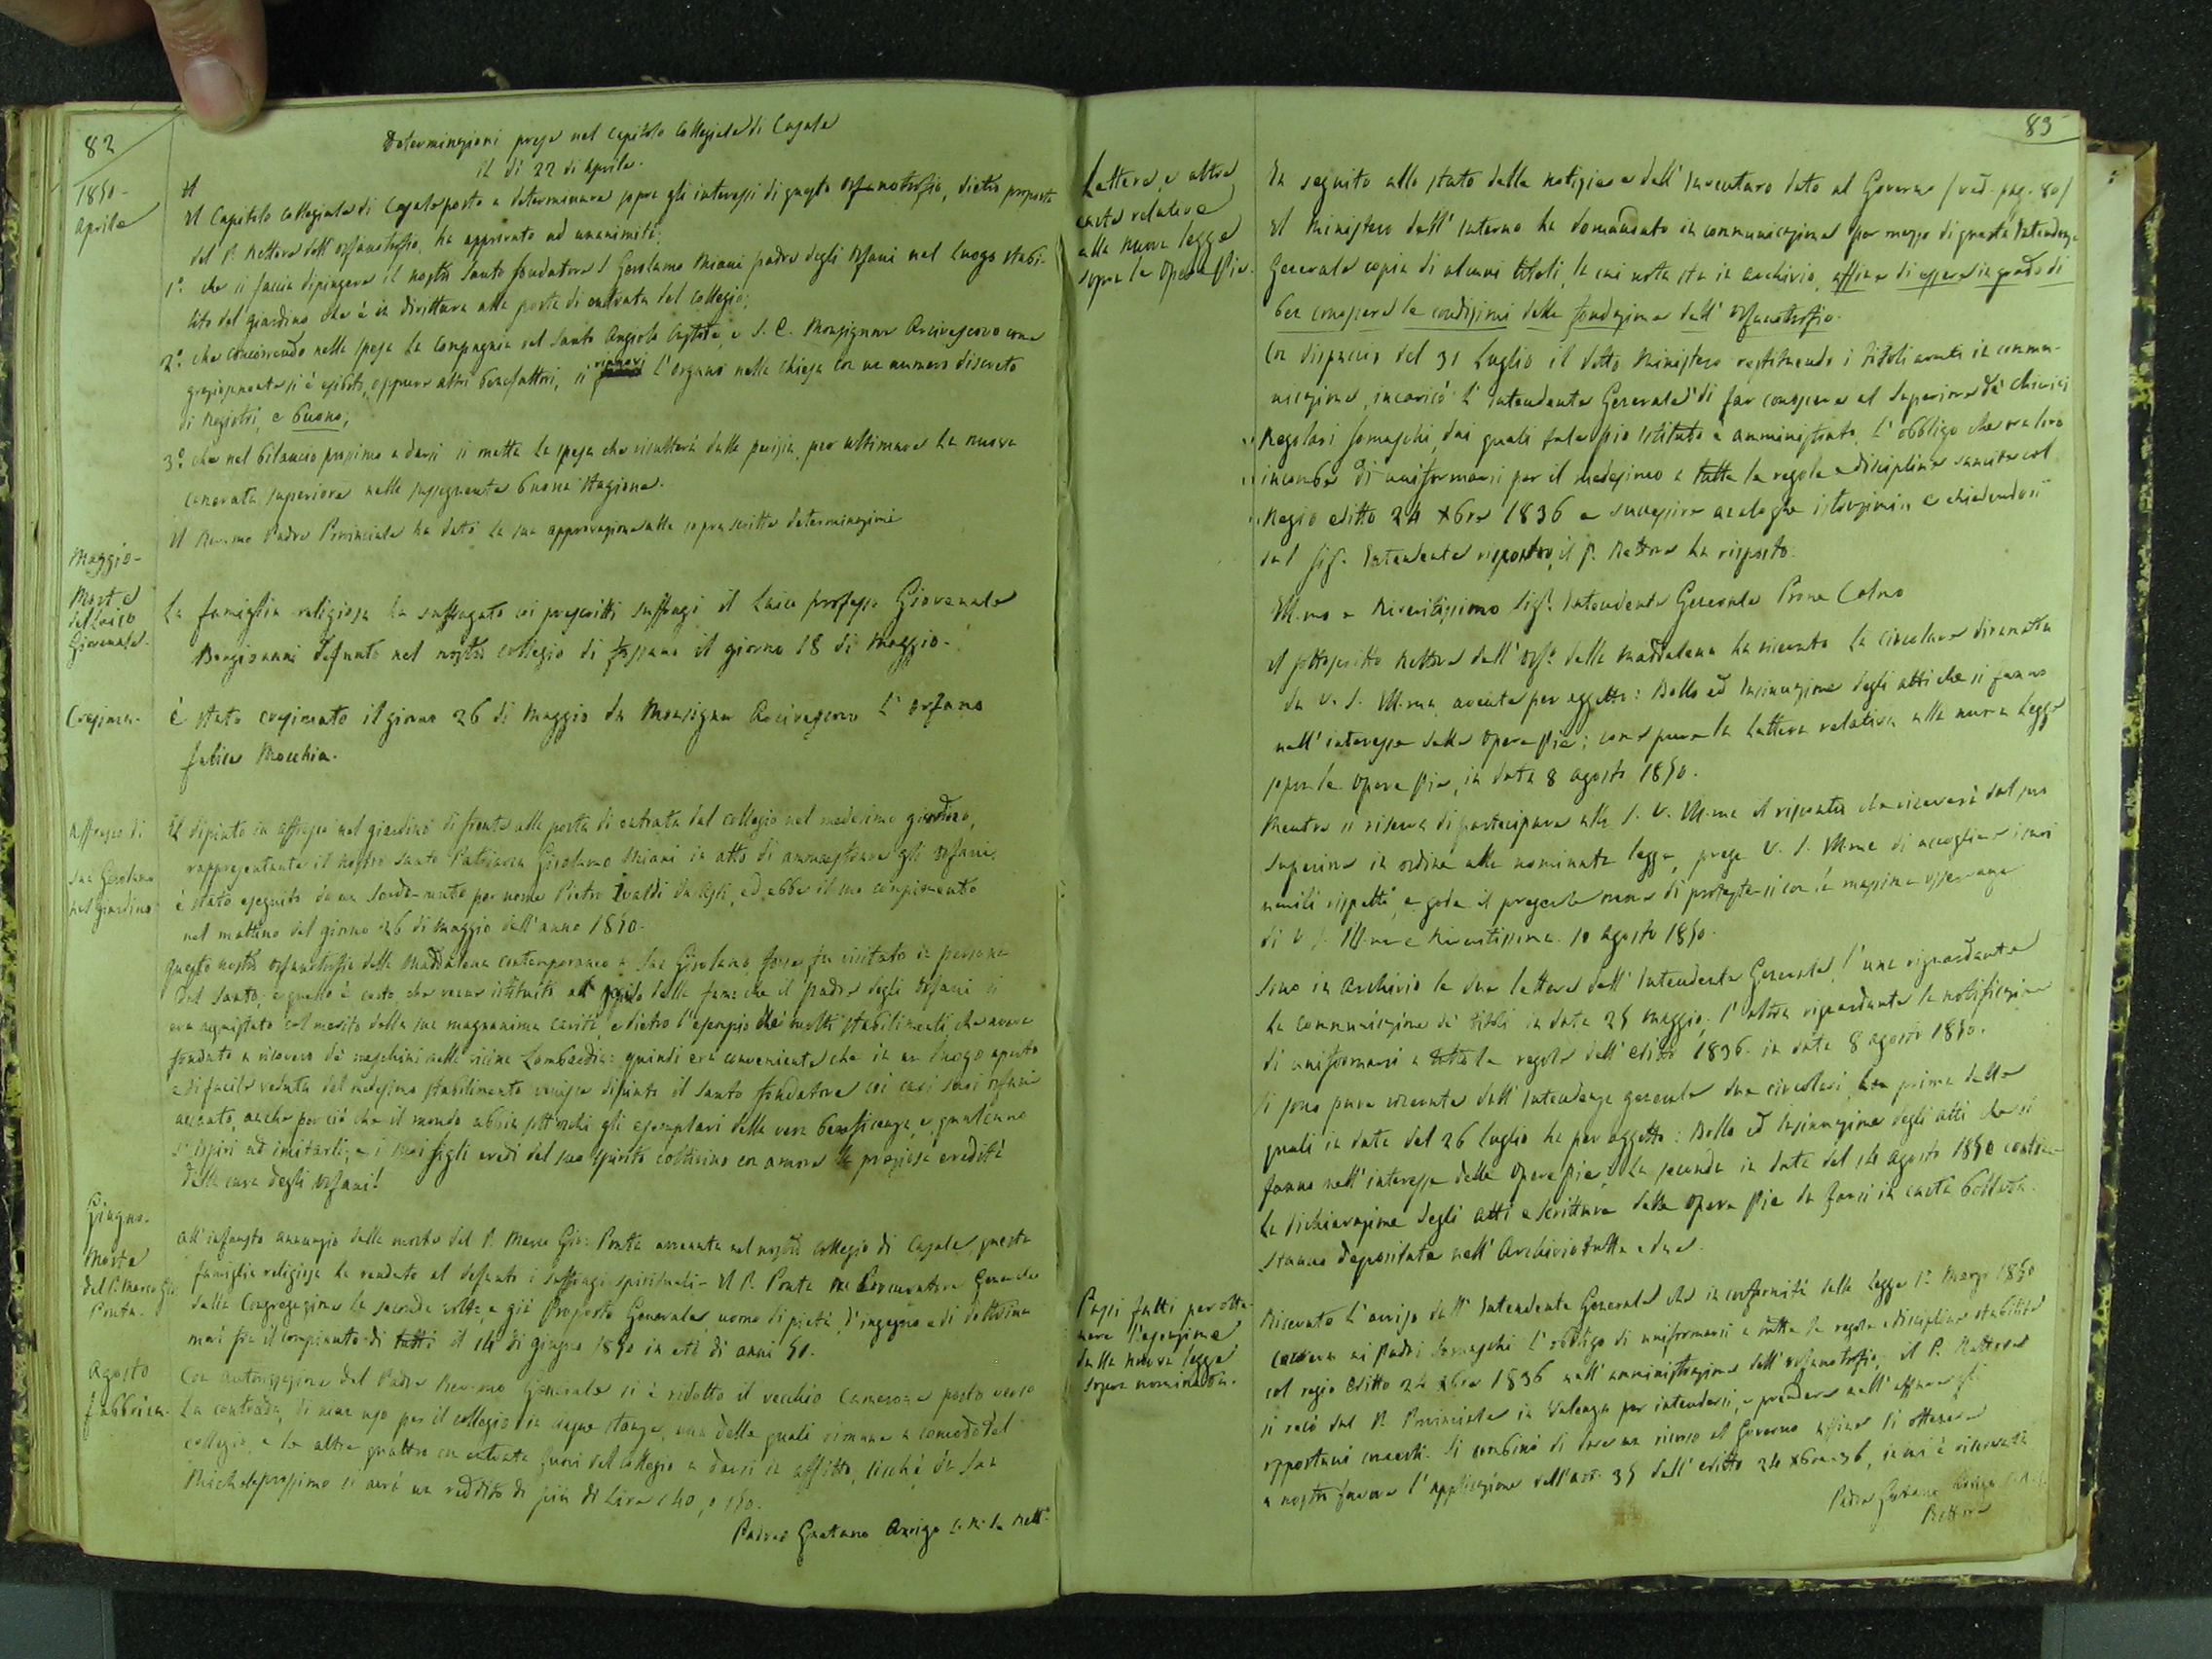 82
Determinazioni prese nel Capitolo Collegiale di Casale
il di 22 di Aprile.
1850 -
Aprile
Il Capitolo Collegiale di Casale posto a determinare sopra gli interessi di questo Orfanotrofio, dietro proposta
del P. Rettore dell'orfanotrofio, ha approvato ad unanimità:
1.° che si faccia dipingere il nostro Santo fondatore S Gerolamo Miani padre degli Orfani nel luogo stabi-
lito del giardino che è in dirittura alla porta di entrata del collegio;
2.° che concorrendo nella spesa la Compagnia del Santo Angiolo Custode, e S. E. Monsignor Arcivescovo come
graziosamente si è esibito, oppure altri benefattori, si rinnovi l'organo nella Chiesa con un numero discreto
di Registri, e buono;
3.° che nel bilancio prossimo a darsi si metta la spesa che risulterà dalla perizia, per ultimare la nuova
camerata superiore nella susseguente buona stagione.
Il Rev.mo Padre Provinciale ha dato la sua approvazione alle soprascritte determinazioni
Maggio -
Morte
del Laico
Giovenale.
La famiglia religiosa ha suffragato coi prescritti suffragi il Laico professo Giovenale
Bongioanni defunto nel nostro collegio di Fossano il giorno 18 di Maggio.
Cresima.
è stato cresimato il giorno 26 di Maggio da Monsignor Arcivescovo l'orfano
felice Mocchia.
Affresco di
San Girolamo
nel giardino
Il dipinto in affresco nel giardino di fronte alla porta di entrata del collegio nel medesimo giardino,
rappresentante il nostro santo Patriarca Girolamo Miani in atto di ammaestrare gli orfani,
è stato eseguito da un sordo-muto per nome Pietro Ivaldi da Asti, ed ebbe il suo compimento
nel mattino del giorno 26 di Maggio dell'anno 1850.
questo nostro orfanotrofio della Maddalena contemporaneo a San Girolamo, forse fu visitato in persona
dal Santo; e questo è certo, che venne istituito al grido della fama che il padre degli Orfani si
era acquistato col merito della sua magnanima carità, e dietro l'esempio de' molti stabilimenti che aveva
fondato a ricovero de' meschini nella vicina Lombardia: quindi era conveniente che in un luogo aperto
e di facile veduta del medesimo stabilimento venisse dipinto il Santo fondatore coi cari suoi orfani
accanto, anche perciò che il mondo abbia sott'occhi gli esemplari della vera beneficenza, e qualcuno
s'ispiri ad imitarli; e i suoi figli eredi del suo spirito coltivino con amore la preziosa eredità
della cura degli Orfani!
Giugno.
Morte
del P. Marco Gio:
Ponta.
All'infausto annunzio della morte del P. Marco Gio: Ponta avvenuta nel nostro Collegio di Casale, questa
famiglia religiosa ha renduto al defunto i suffragi spirituali - Il P. Ponta era Procuratore Generale
della Congregazione la seconda volta, e già Preposto Generale, uomo di pietà, d'ingegno e di dottrina
morì fra il compianto di tutti il 14 di Giugno 1850 in età di anni 50.
Agosto
fabbrica.
Con autorizzazione del Padre Rev.mo Generale si è ridotto il vecchio Camerone posto verso
la contrada, di niun uso per il collegio in cinque stanze, una delle quali rimane a comodo del
collegio, e le altre quattro con entrata fuori del Collegio a darsi in affitto, sicchè da San
Michele prossimo si avrà un reddito di più di Lire 140, o 150.
Padre Gaetano Arrigo C. R. S. Rett.e
83
Lettere, e altre
carte relative
alla nuova legge
sopra le Opere Pie.
In seguito allo stato delle notizie e dell'Inventaro dato al Governo (ved. pag. 80)
Il Ministero dell'Interno ha domandato in communicazione per mezzo di questa Intendenza
Generale copia di alcuni titoli, la cui nota sta in archivio, affine di essere in grado di
ben conoscere le condizioni della fondazione dell'Orfanotrofio.
Con dispaccio del 31 Luglio il detto Ministero restituendo i titoli avuti in commu-
nicazione, incaricò l'Intendente Generale "di far conoscere al Superiore de' Chierici
" Regolari Somaschi, dai quali tale pio Istituto è amministrato, l'obbligo che ora loro
" incombe di uniformarsi per il medesimo a tutte le regole e discipline sancite col
" Regio editto 24 Xbre 1836 e successive analoghe istruzioni" e chiedendosi
dal Sig. Intendente risposta, il P. Rettore ha risposto:
Ill.mo e Riveritissimo Sig.r Intendente Generale Prone Colmo
Il sottoscritto Rettore dell'Orf.o della Maddalena ha ricevuto la circolare diramata
da V. S. Ill.ma, avente per oggetto: Bollo ed Insinuazione degli atti che si fanno
nell'interesse delle Opere Pie; come pure la lettera relativa alla nuova legge
sopra le Opere Pie, in data 8 Agosto 1850.
Mentre si riserva di partecipare alla S. V. Ill.ma il riscontro che riceverà dal suo
Superiore in ordine alla nominata legge, prega V. S. Ill.ma di accogliere i suoi
umili rispetti, e gode il pregevole onore di protestarsi con la massima osservanza
di V. S. Ill.ma e Riveritissima. 10 Agosto 1850.
Sono in Archivio le due lettere dell'Intendente Generale, l'una riguardante
la communicazione di titoli in data 25 Maggio; l'altra riguardante la notificazione
di uniformarsi a tutte le regole dell'editto 1836. in data 8 Agosto 1850.
Si sono pure ricevute dall'Intendenza generale due circolari, la prima delle
quali in data del 26 Luglio ha per oggetto: Bollo ed Insinuazione degli atti che si
fanno nell'interesse delle Opere Pie; la seconda in data del 14 Agosto 1850 contiene
la dichiarazione degli atti e scritture delle Opere Pie da farsi in carta bollata.
Stanno depositate nell'Archivio tutte e due.
Passi fatti per otte-
nere l'esenzione
dalla nuova legge
sopra nominata.
Ricevuto l'avviso dell'Intendente Generale che in conformità della legge 1.° Marzo 1850
correva ai Padri Somaschi l'obbligo di uniformarsi a tutte le regole e discipline stabilite
col regio editto 24 Xbre 1836 nell'amministrazione dell'orfanotrofio; il P. Rettore
si recò dal P. Provinciale in Valenza per intendersi, e prendere nell'affare gli
opportuni concerti. Si combinò di fare un ricorso al Governo affine di ottenere
a nostro favore l'applicazione dell'art. 35 dell'editto 24 Xbre 36, in cui è riservata
Padre Gaetano Arrigo
Rettore